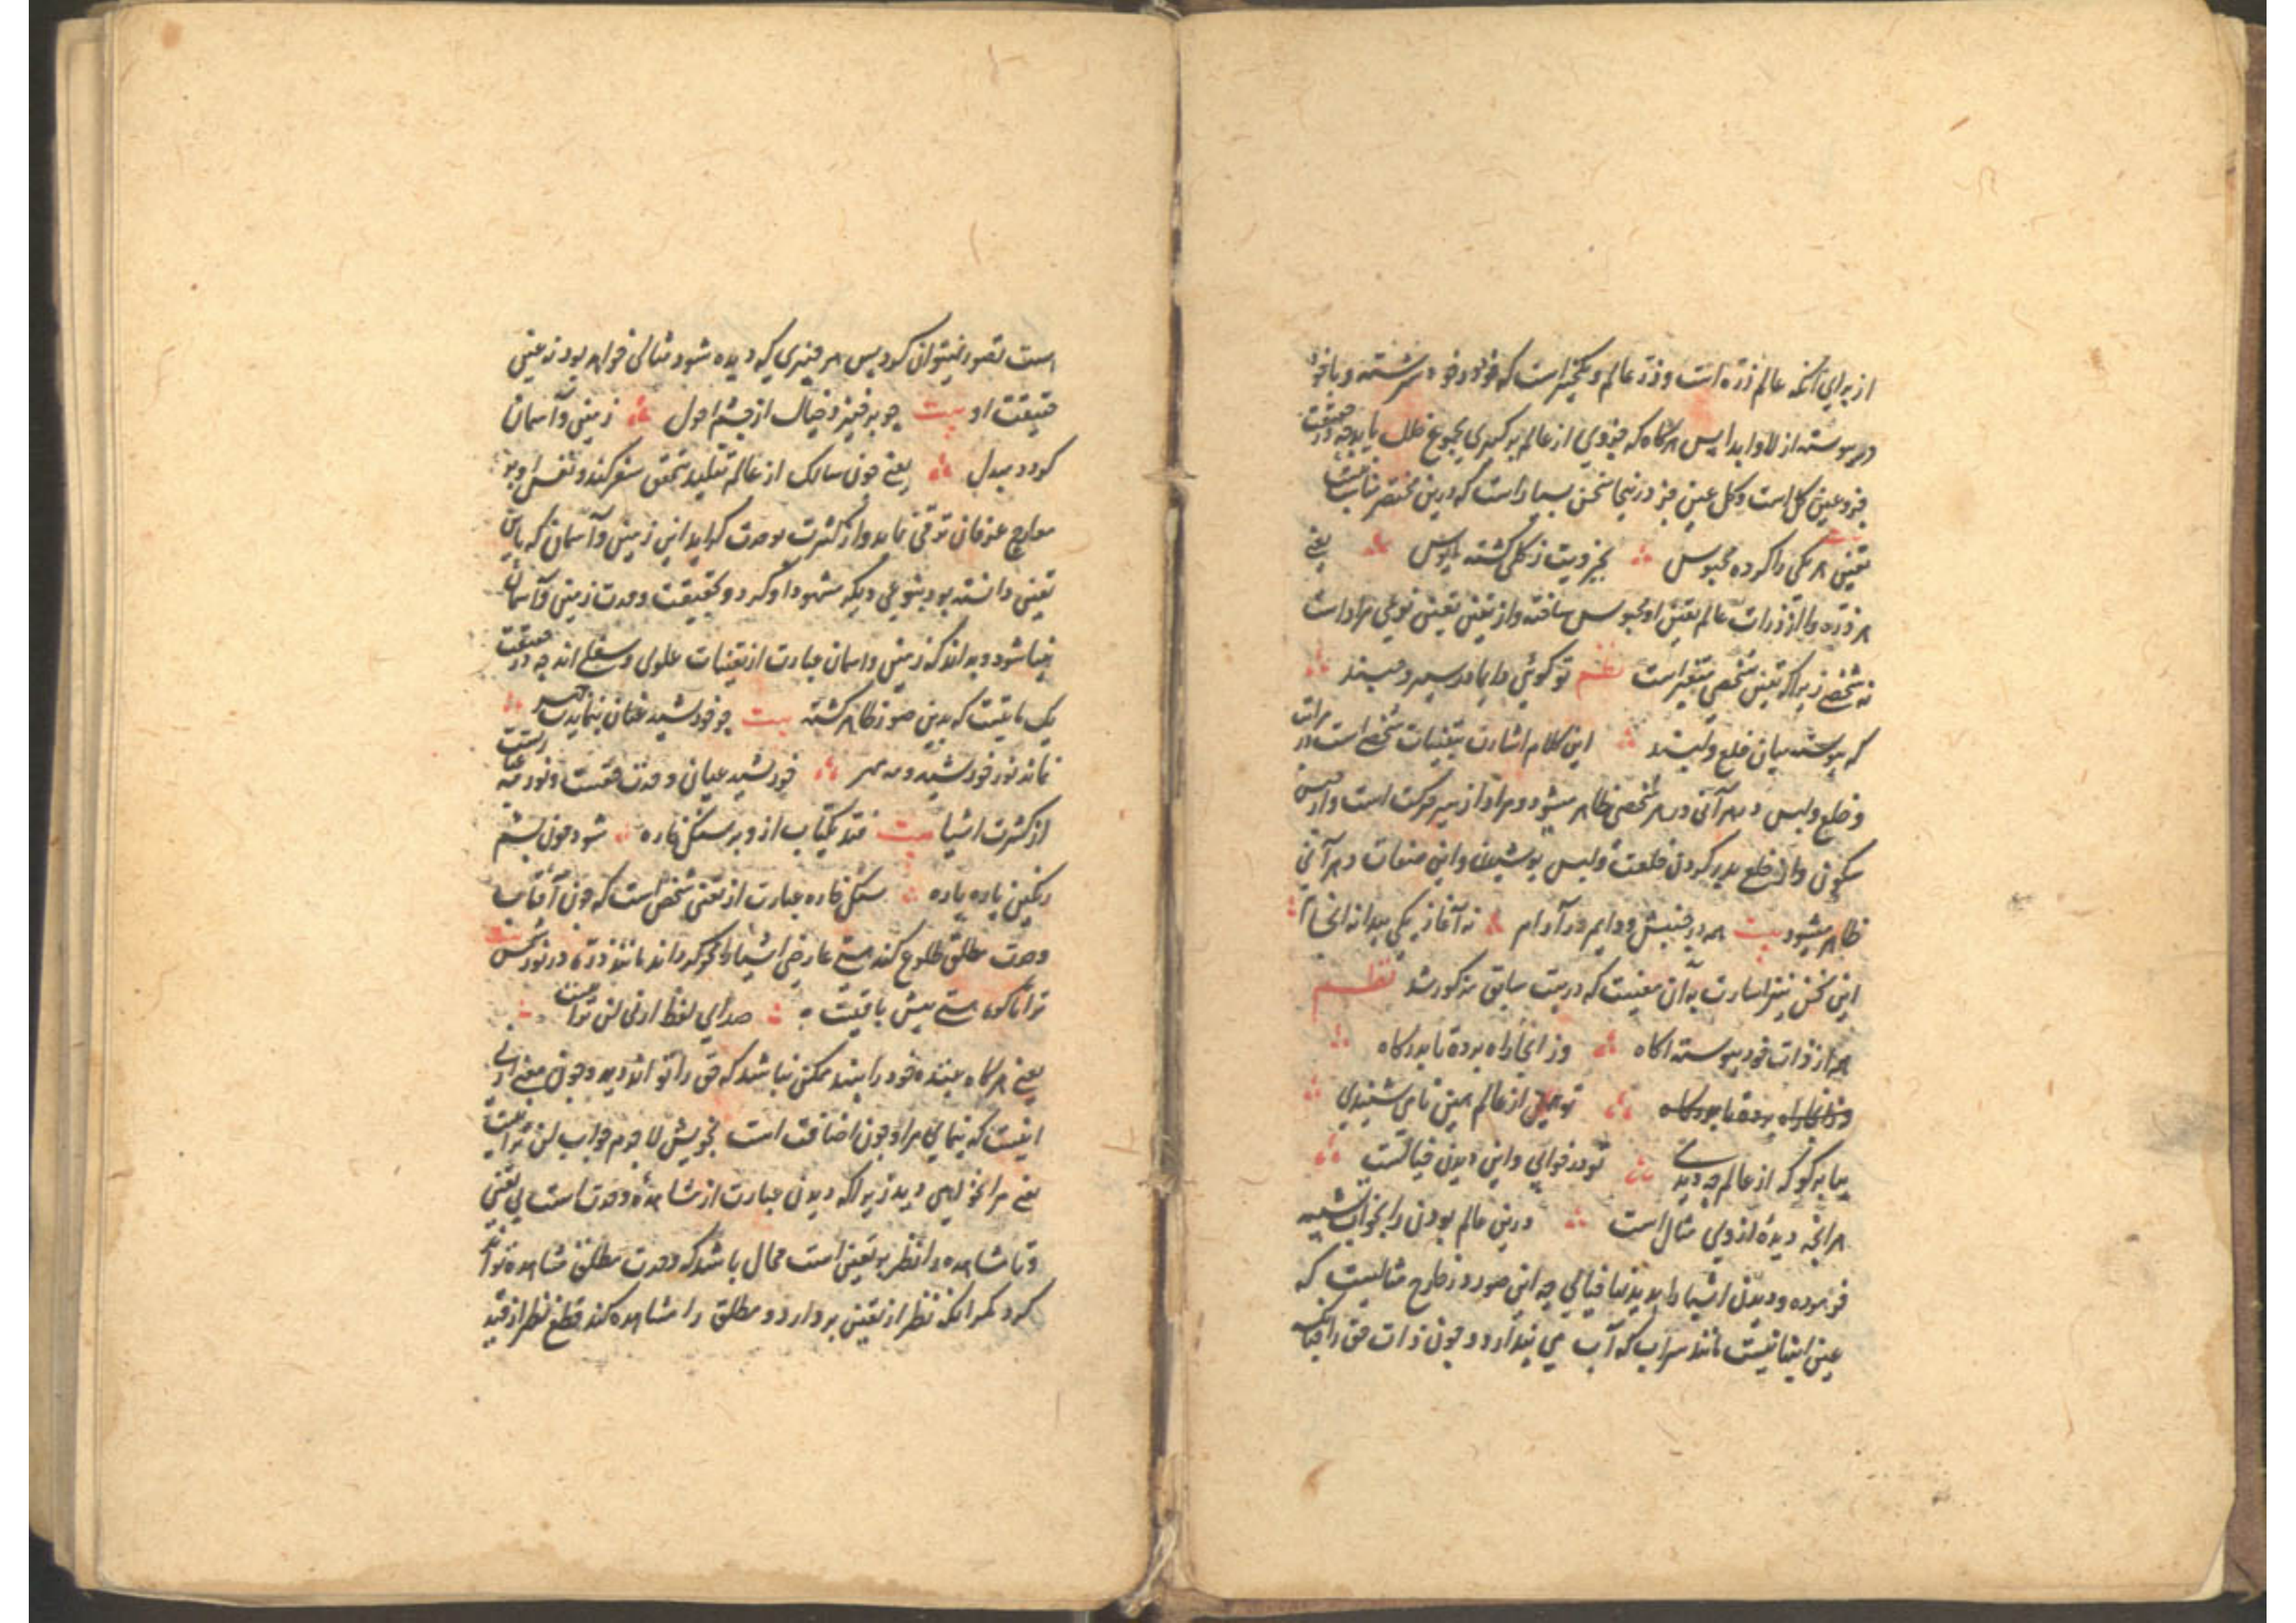 از برای آنکه عالم ذره است و ذره عالم و یکچیز است که خود در خود سرشته و با خود
در پیوسته از لا و ابدا پس هرگاه که جزوی از عالم برگیری بمجموع خلل یابد چه در حقیقت
جزو عین کل است و کل عین جز و درینجا سخن بسیار است که درین مختصر مناسب نیست
تعین هر یکی را کرده محبوس بجزویت ز کلی گشته مایوس یعنی
هر ذره را از ذرات عالم تعین او محبوس ساخته و از تعین تعین نوعی مراد است
نه شخصی زیرا که تعین شخصی متغیر است نظم تو گوئی دایما در سیر و حبسند
که پیوسته میان خلع و لبسند این کلام اشارت بتعینات شخصی است در مراتب
و خلع و لبس در هر آنی در هر شخصی ظاهر میشود و مراد از سیر حرکت است و از حبس
سکون و از خلع بدر کردن خلعت و لبس پوشیدن و این صفات در هر آنی
ظاهر میشود بیت همه در جنبش و دایم در آرام نه آغاز یکی پیدا نه انجام
این سخن نیز اشارت به آن معنیست که در بیت سابق مذکور شد نظم
همه از ذات خود پیوسته آگاه وز آنجا راه برده تا بدرگاه
وز آنجا راه برده تا بدرگاه تو از عالم همین نامی شنیدی
بیا برگو که از عالم چه دیدی تو در خوابی و این دیدن خیالست
هر آنچه دیدهٔ از وی مثال است درین عالم بودن را بخواب تشبیه
فرموده و دیدن اشیا را بدید نها خیالی چه این صور در خارج مثالیست که
عین اشیا نیست مانند سراب که آب می پندارد و چون ذات حق را چنانکه
است تصور نمیتوان کرد پس هر چیزی که دیده شود مثالی خواهد بود نه عین
حقیقت او بیت چو برخیزد خیال از چشم احول زمین و آسمان
گردد مبدل یعنی چون سالک از عالم تقلید بتحقیق سفر کند و نفس او بر
معارج عرفان ترقی نماید و از کثرت بوحدت گراید این زمین و آسمان که باین
تعین دانسته بود بنوعی دیگر مشهود او گردد و بحقیقت وحدت زمین و آسمان
بینا شود و بداند که زمین و اسمان عبارت از تعینات علوی و سفلی اند چه در حقیقت
یک ماهیت که بدین صور ظاهر گشته بیت چو خورشید عیان بنمایدت چهر
نماند نور خورشید و مه مهر خورشید عیان وحدت حقست و نور مه عبارتست
از کثرت اشیا بیت فتد یکتاب ازو بر سنگ خاره شود چون پشم
رنگین پاره پاره سنگ خاره عبارت از تعین شخص است که چون آفتاب
وحدت مطلق طلوع کند هستی عارضی اشیا را محو گرداند مانند ذره در نور شمس بیت
ترا تا کوه هستی پیش باقیست صدای لفظ ارنی لن ترانیست
یعنی هرگاه بیننده خود را بیند ممکن نباشد که حق را تواند دید و چون معنی ارنی
اینست که بنمای مرا و چون اضافت است بخویش لاجرم جواب لن ترانیست
یعنی مرا نخواهی دید زیرا که دیدن عبارت از مشاهدهٔ وحدت است بی تعین
و تا مشاهده را نظر بر تعین است محال باشد که وحدت مطلق مشاهده تواند
کرد مگر انکه نظر از تعین بردارد و مطلق را مشاهده کند قطع نظر از قید